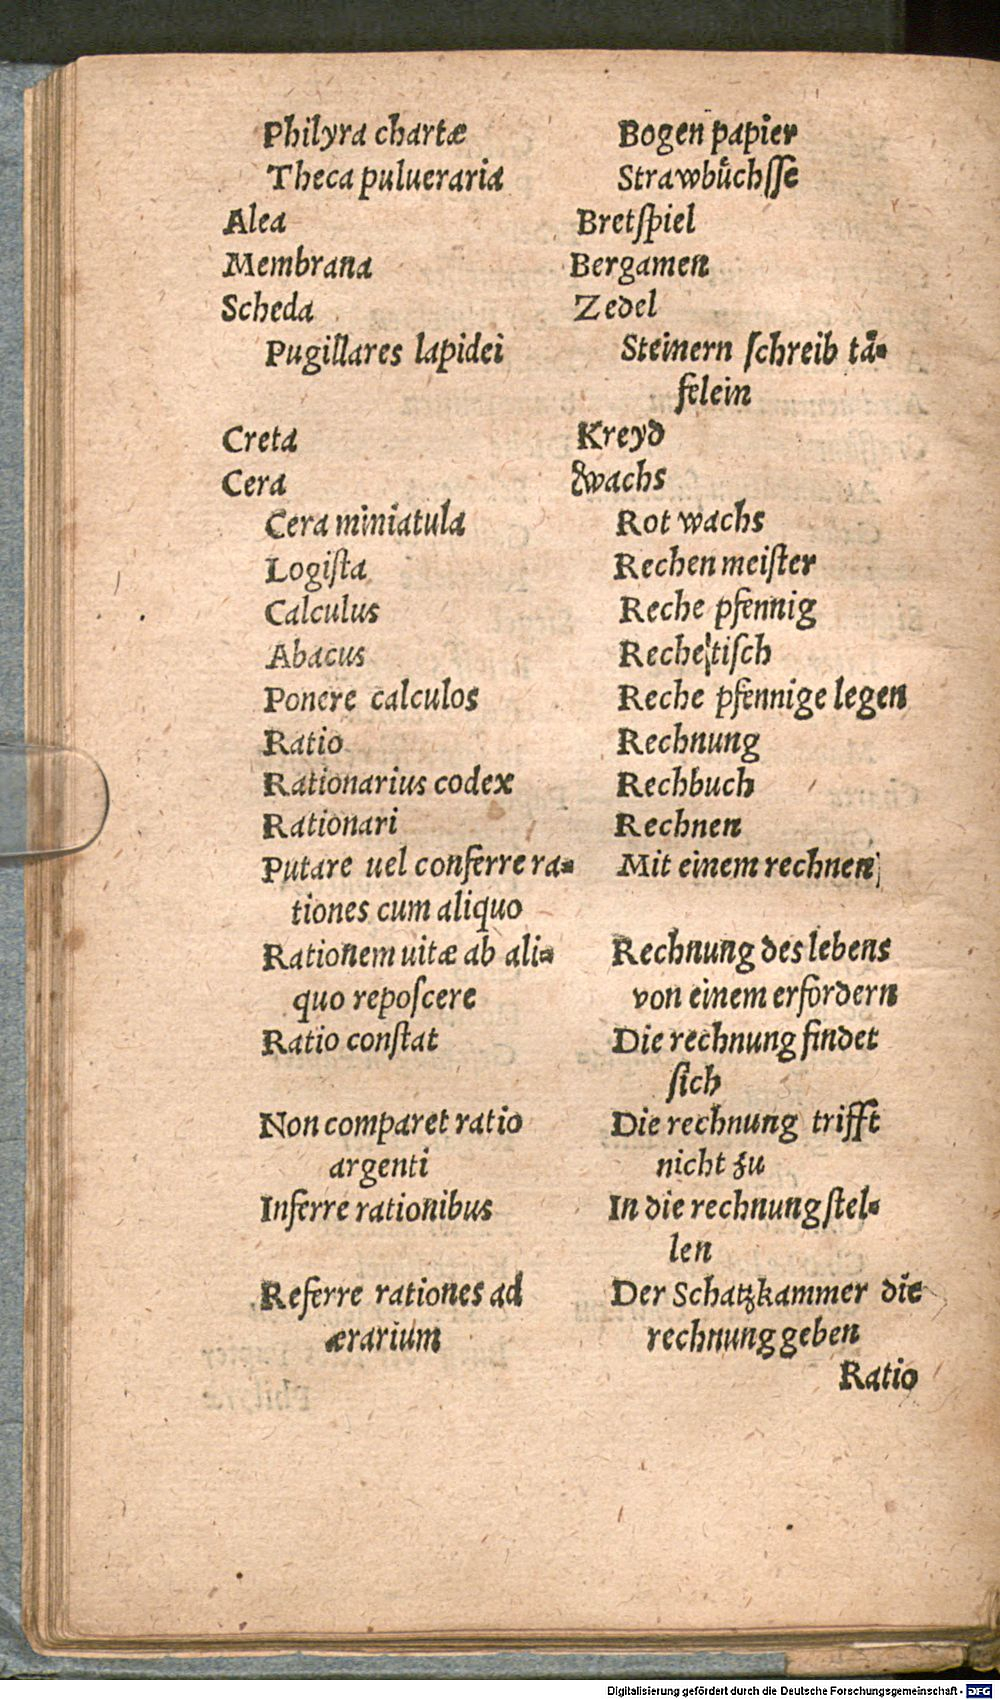 Philyra chartæ Bogen papier
Theca pulueraria Strawbuͤchſſe
Alea Bretſpiel
Membrana Bergamen
Scheda Zedel
Pugillares lapidei Steinern ſchreib taͤ⸗
felein
Creta Kreyd
Cera wachs
Cera miniatula Rot wachs
Logiſta Rechen meiſter
Calculus Reche pfennig
Abacus Reche tiſch
Ponere calculos Reche pfennige legen
Ratio Rechnung
Rationarius codex Rechbuch
Rationari Rechnen
Putare uel conferre ra⸗ Mit einem rechnen
tiones cum aliquo
Rationem uitæ ab ali⸗ Rechnung des lebens
quo repoſcere von einem erfordern
Ratio conſtat Die rechnung findet
ſich
Non comparet ratio Die rechnung trifft
argenti nicht zu
Inferre rationibus In die rechnung ſtel⸗
len
Referre rationes ad Der Schatzkammer die
ærarium rechnung geben
Ratio
Digitalisierung gefördert durch die Deutsche Forschungsgemeinschaft - DFG